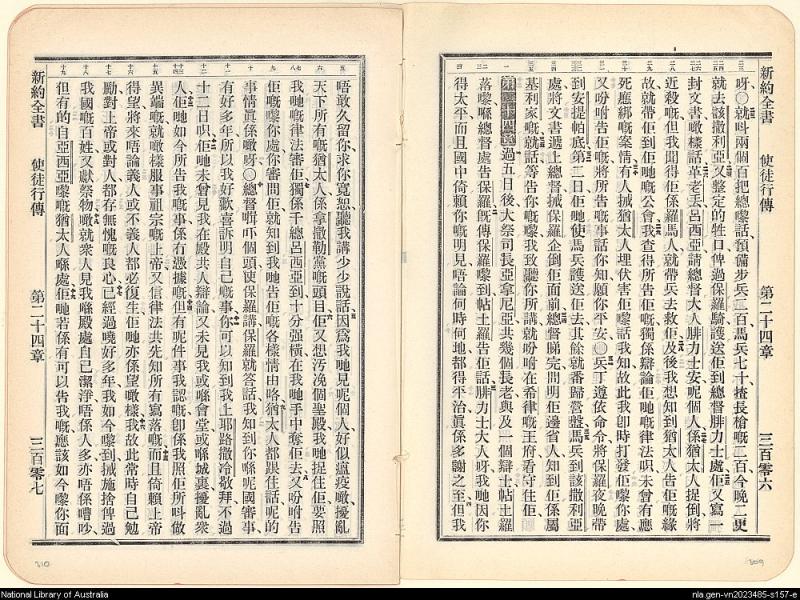 新約全書 使徒行傳 第二十四章 三百零六
呀○就呌兩個百把總嚟話預備步兵二百馬兵七十揸長槍嘅二百今晚二更
就去該撒利亞又整定的牲口俾過保羅騎護送佢到總督腓力士處佢又寫一
封文書噉樣話革老丢呂西亞請總督大人腓力士安呢個人係猶太人捉倒將
近殺嘅但我聞得佢係羅馬人就帶兵去救佢及後我想知到猶太人告佢嘅緣
故就帶佢到佢哋嘅公會我查得所告佢嘅獨係辯論佢哋嘅律法呮未曾有應
死應綁嘅案情有人揻猶太人埋伏害佢嚟話我知故此我卽時打發佢嚟你處
又吩咐告佢嘅將所告嘅事話你知願你平安○兵丁遵依命令將保羅夜晚帶
到安提帕底第二日佢哋使馬兵護送佢去其餘就番歸營盤馬兵到該撒利亞
處將文書遞上總督揻保羅企倒佢面前總督睇完問明佢邊省人知到佢係屬
基利家嘅就話等告你嘅嚟我致聽你所講就吩咐在希律嘅王府看守住佢
過五日後大祭司長亞拿尼亞共幾個長老與及一個辯士帖土羅
落嚟喺總督處告保羅旣傳保羅嚟到帖土羅告佢話腓力士大人呀我哋因你
得太平而且國中倚賴你嘅明見唔論何時何地都得平治眞係多謝之至但我
新約全書 使徒行傳 第二十四章 三百零七
唔敢久留你求你寬恕聽我講少少說話因爲我哋見呢個人好似瘟疫噉擾亂
天下所有嘅猶太人係拿撒勒黨嘅頭目佢又想汚凂個聖殿我哋捉住佢要照
我哋嘅律法審佢獨係千總呂西亞到十分强橫在我哋手中奪佢去又吩咐告
佢嘅嚟你處你審問佢就知到我哋告佢嘅各樣情由咯猶太人都跟住話呢的
事情眞係噉呀○總督㖭吓個頭俾保羅講保羅就答話我知到你喺呢國審事
有好多年所以我好歡喜訴明自己嘅事你可以知到我上耶路撒冷敬拜不過
十二日呮佢哋未曾見我在殿共人辯論又未見我或喺會堂或喺城裏擾亂衆
人佢哋如今所告我嘅事係有憑據嘅但有呢件事我認嘅卽係我照佢所呌做
異端嘅就噉樣服事祖宗嘅上帝又信律法共先知所有寫落嘅而且倚賴上帝
得望將來唔論義人或不義人都必復生佢哋亦係望噉樣我故此常時自己勉
勵對上帝或對人都存無愧嘅良心已經過曉好多年我如今嚟到揻施捨俾過
我國嘅百姓又獻祭物噉就衆人見我喺殿處自已潔淨唔係人多亦唔係嘈吵
但有的自亞西亞嚟嘅猶太人喺處佢哋若係有可以告我嘅應該如今嚟你面
310
309
National Library of Australia
nla.gen-vn2023485-s157-e